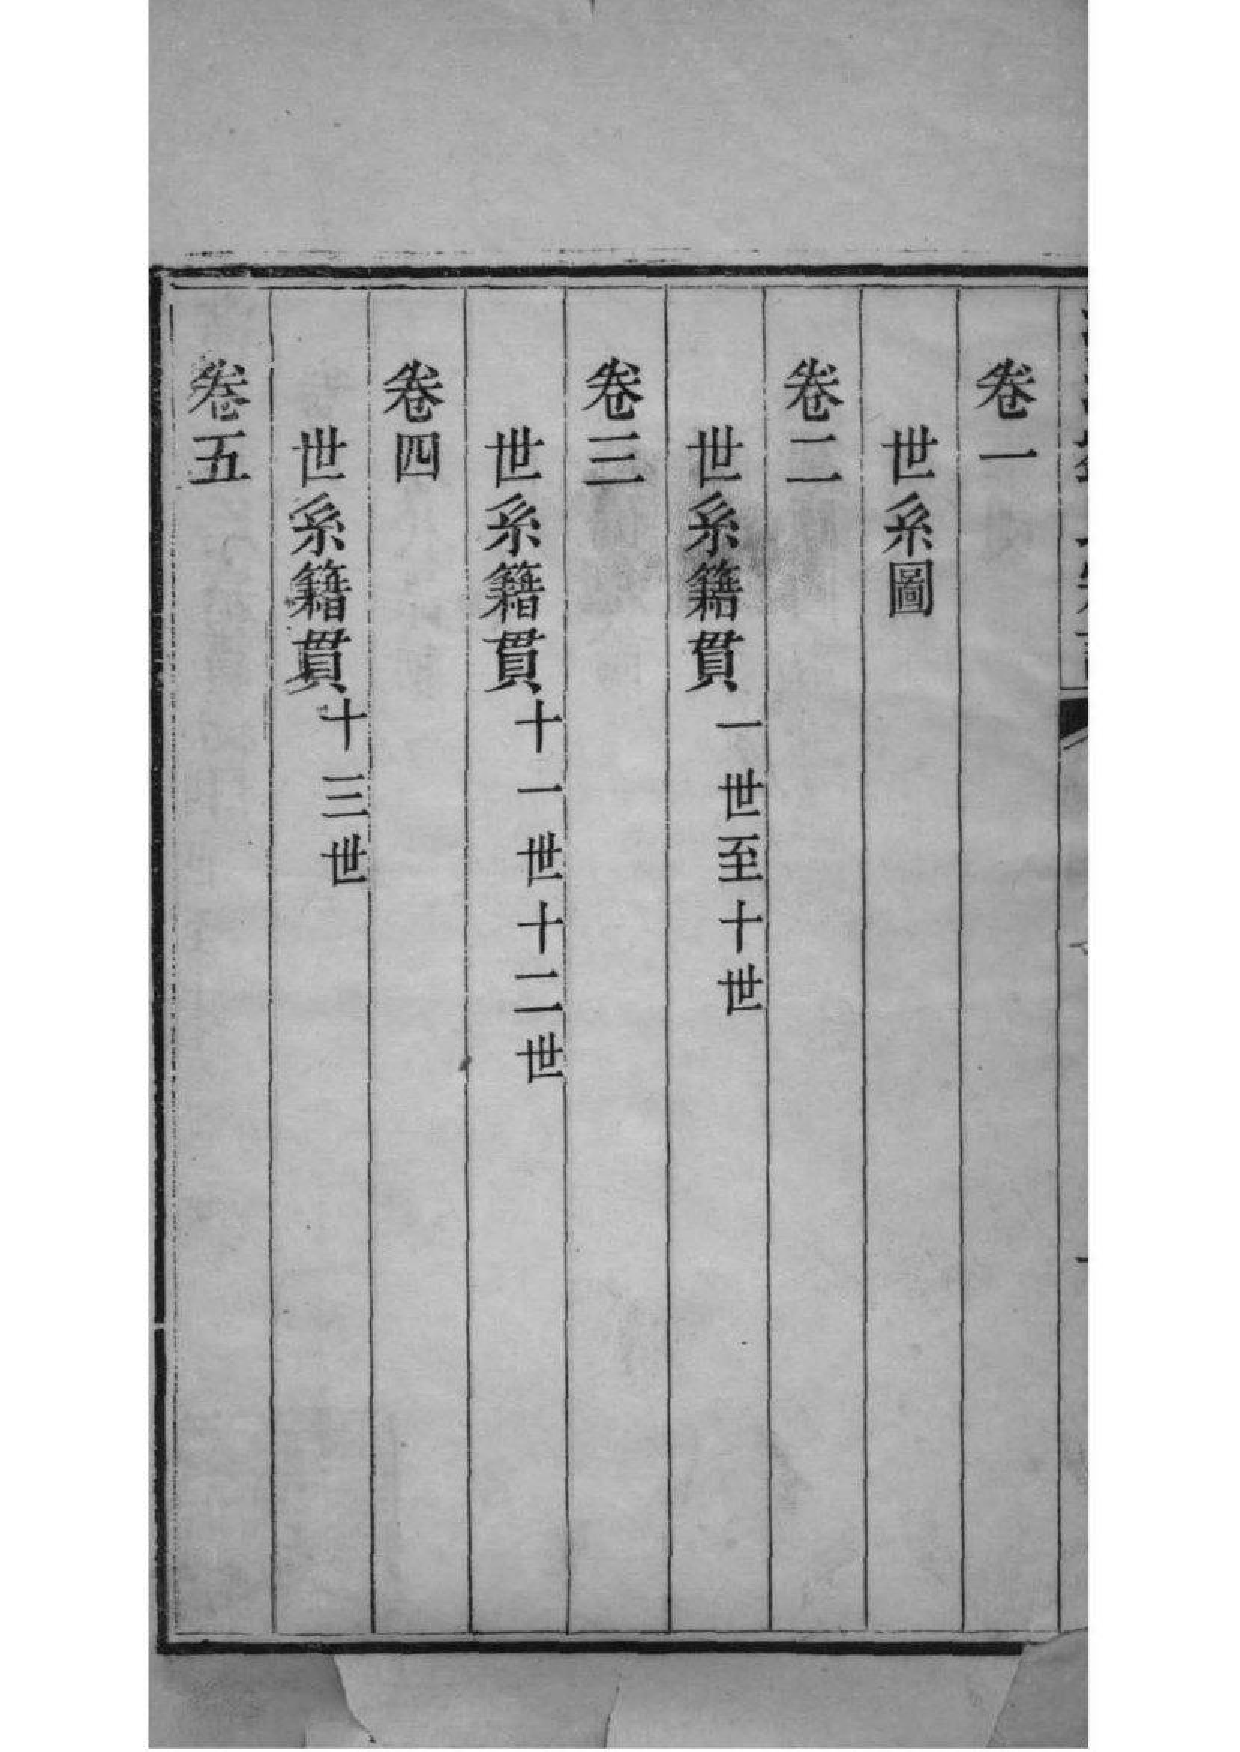 卷一
世系圖
卷二
世系籍貫一世至十世
卷三
世系籍貫十一世十二世
卷四
世系籍貫十三世
卷五